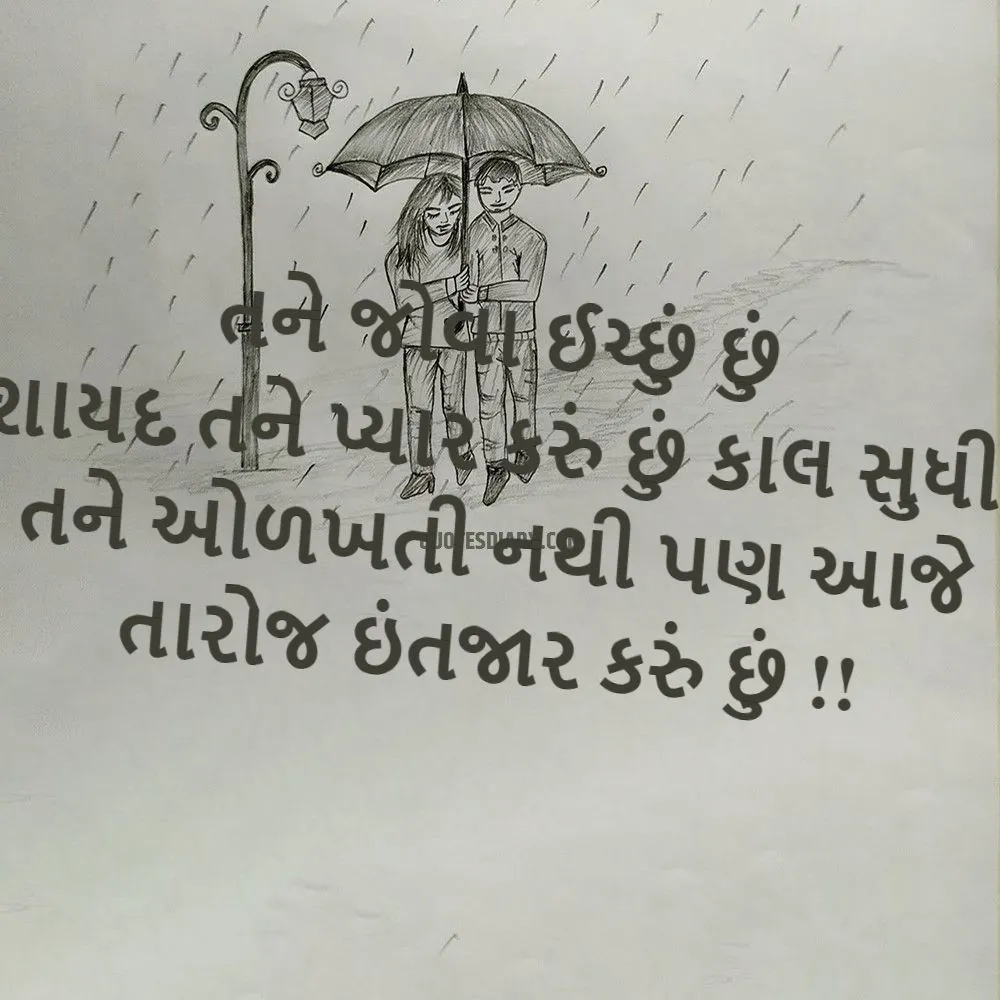 તને જોવા ઈચ્છું છું
શાયદ તને પ્યાર કરું છું કાલ સુધી
તને ઓળખતી નથી પણ આજે
QUOTESDIARY.COM
તારોજ ઇંતજાર કરું છું !!